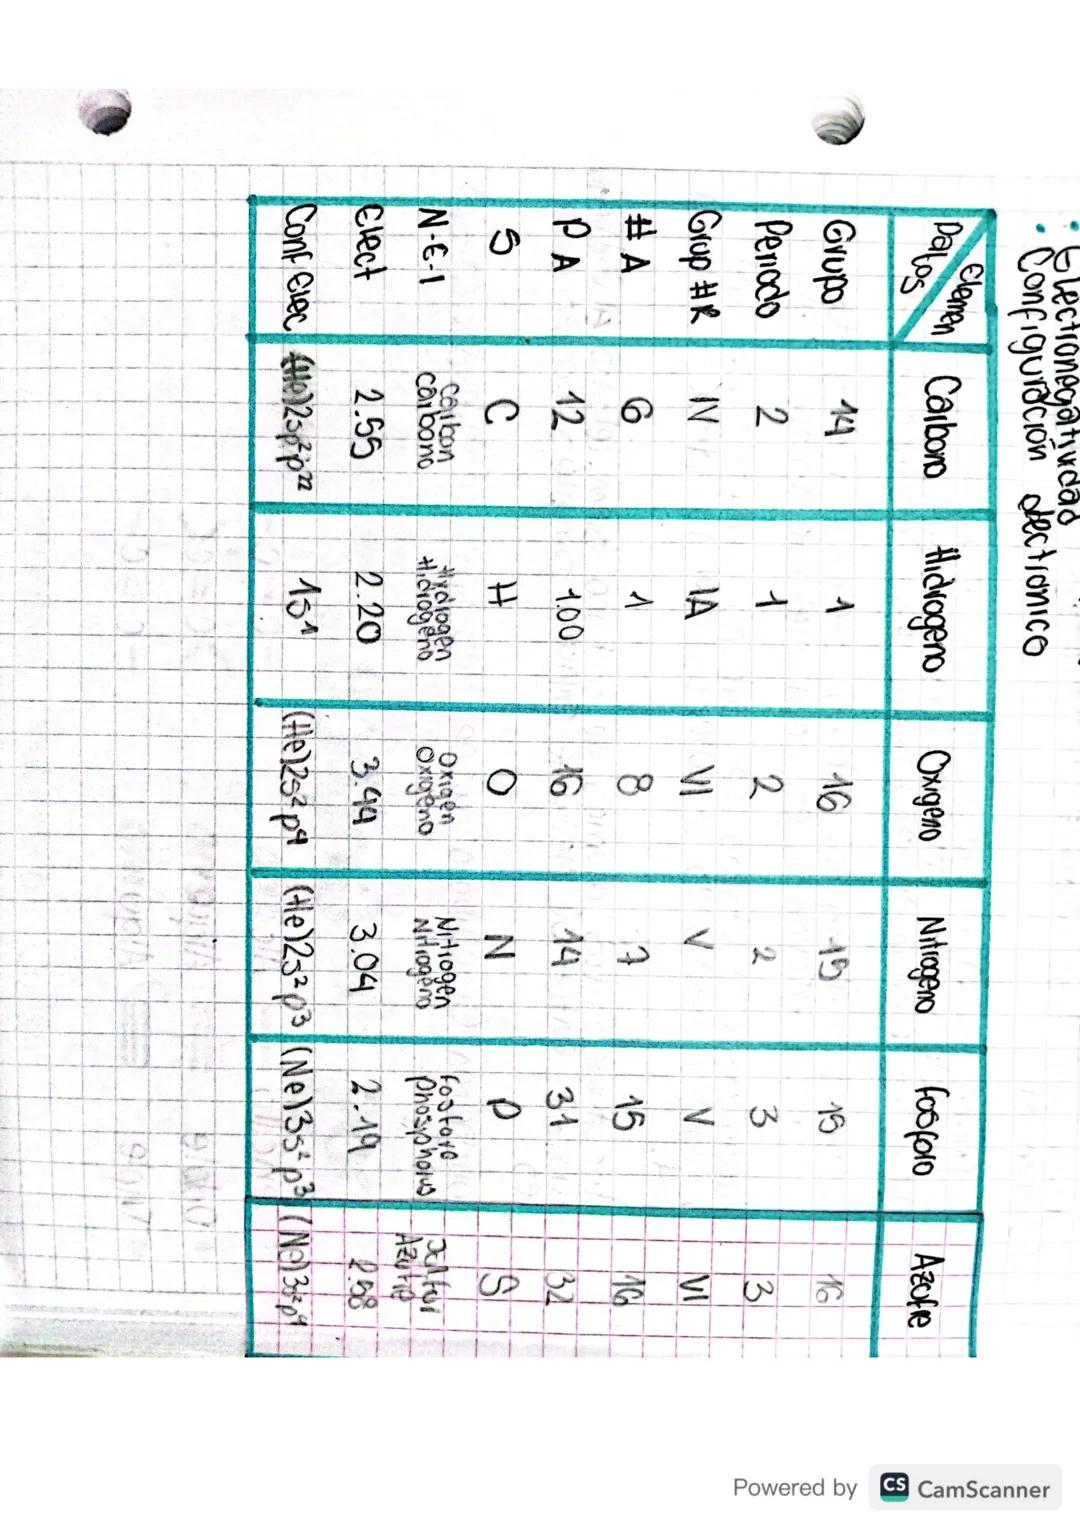 • Electronegatividad
• Configuración electronico
Elemen Datos Carbono Hidrogeno Oxigeno Nitrogeno fosforo Azofre
Grupo 14 1 16 15 15 16
Periodo 2 1 2 2 3 3
Grup #R IV IA VI V V VI
# A 6 1 8 7 15 16
P A 12 1.00 16 14 31 32
S C H O N P S
N-E-I Carbon Hydrogen Oxigen Nitrogen fosforo
Carbono Hidrogeno Oxigeno Nitrogeno phosphorus
Elect 2.55 2.20 3.44 3.04 2.19 2.58
Conf Elec (He)2s²p² 1s1 (He)2s²p⁴ (He)2s²p³ (Ne)3s²p³ (Ne)3s²p⁴
Powered by CS CamScanner